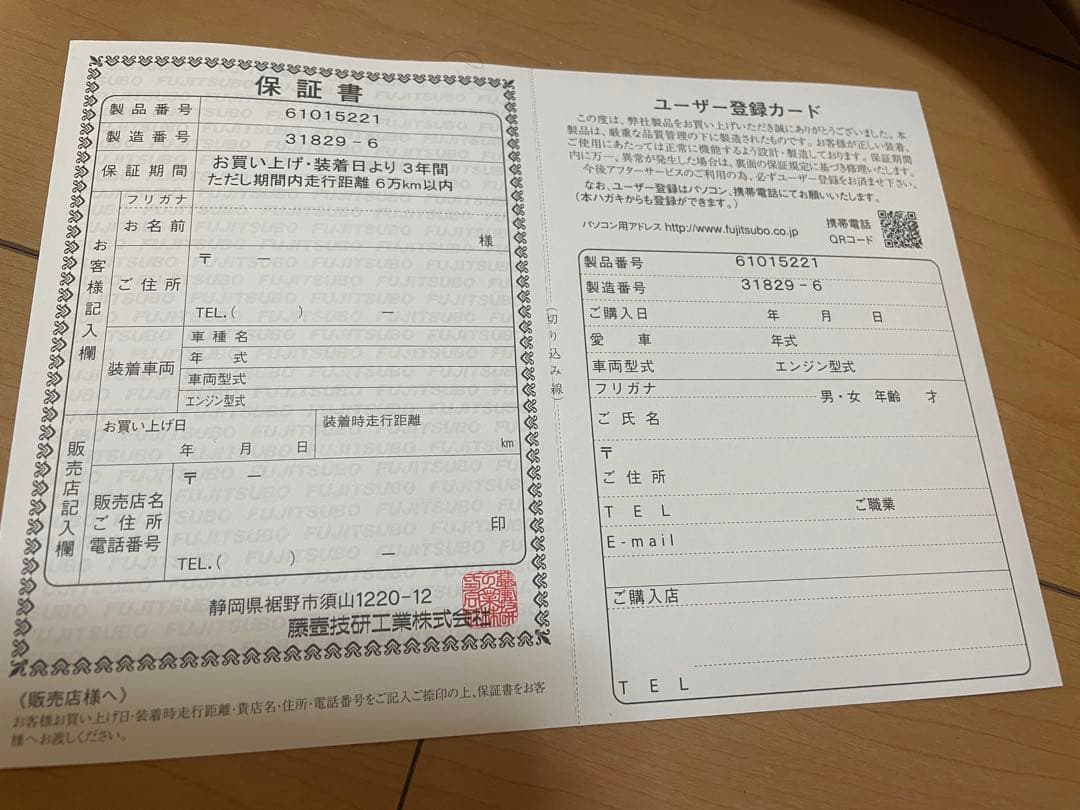 保証書
製品番号 61015221
製造番号 31829-6
保証期間 お買い上げ・装着日より 3年間
ただし期間内走行距離 6万km以内
お客様記入欄
フリガナ
お名前 様
ご住所 〒 ー
TEL.( ) ー
装着車両
車種名
年式
車両型式
エンジン型式
販売店記入欄
お買い上げ日 年 月 日
装着時走行距離 km
販売店名
ご住所
電話番号
〒 ー
印
TEL.( ) ー
静岡県裾野市須山1220-12
藤壺技研工業株式会社
《販売店様へ》
お客様お買い上げ日・装着時走行距離・貴店名・住所・電話番号をご記入ご捺印の上、保証書をお客
様へお渡しください。
(切り込み線)
ユーザー登録カード
この度は、弊社製品をお買い上げいただき誠にありがとうございました。本
製品は、厳重な品質管理の下に製造されたものです。お客様が正しい装着、
ご使用にあたっては正常に機能するよう設計・製造しております。保証期間
内に万一、異常が発生した場合は、裏面の保証規定に基づき修理いたします。
今後アフターサービスのご利用の為、必ずユーザー登録をお済ませ下さい。
なお、ユーザー登録はパソコン、携帯電話にてお願いいたします。
(本ハガキからも登録ができます。)
パソコン用アドレス http://www.fujitsubo.co.jp
携帯電話
QRコード
製品番号 61015221
製造番号 31829-6
ご購入日 年 月 日
愛車 年式
車両型式 エンジン型式
フリガナ
男・女 年齢 才
ご氏名
〒
ご住所
TEL ご職業
E-mail
ご購入店
TEL